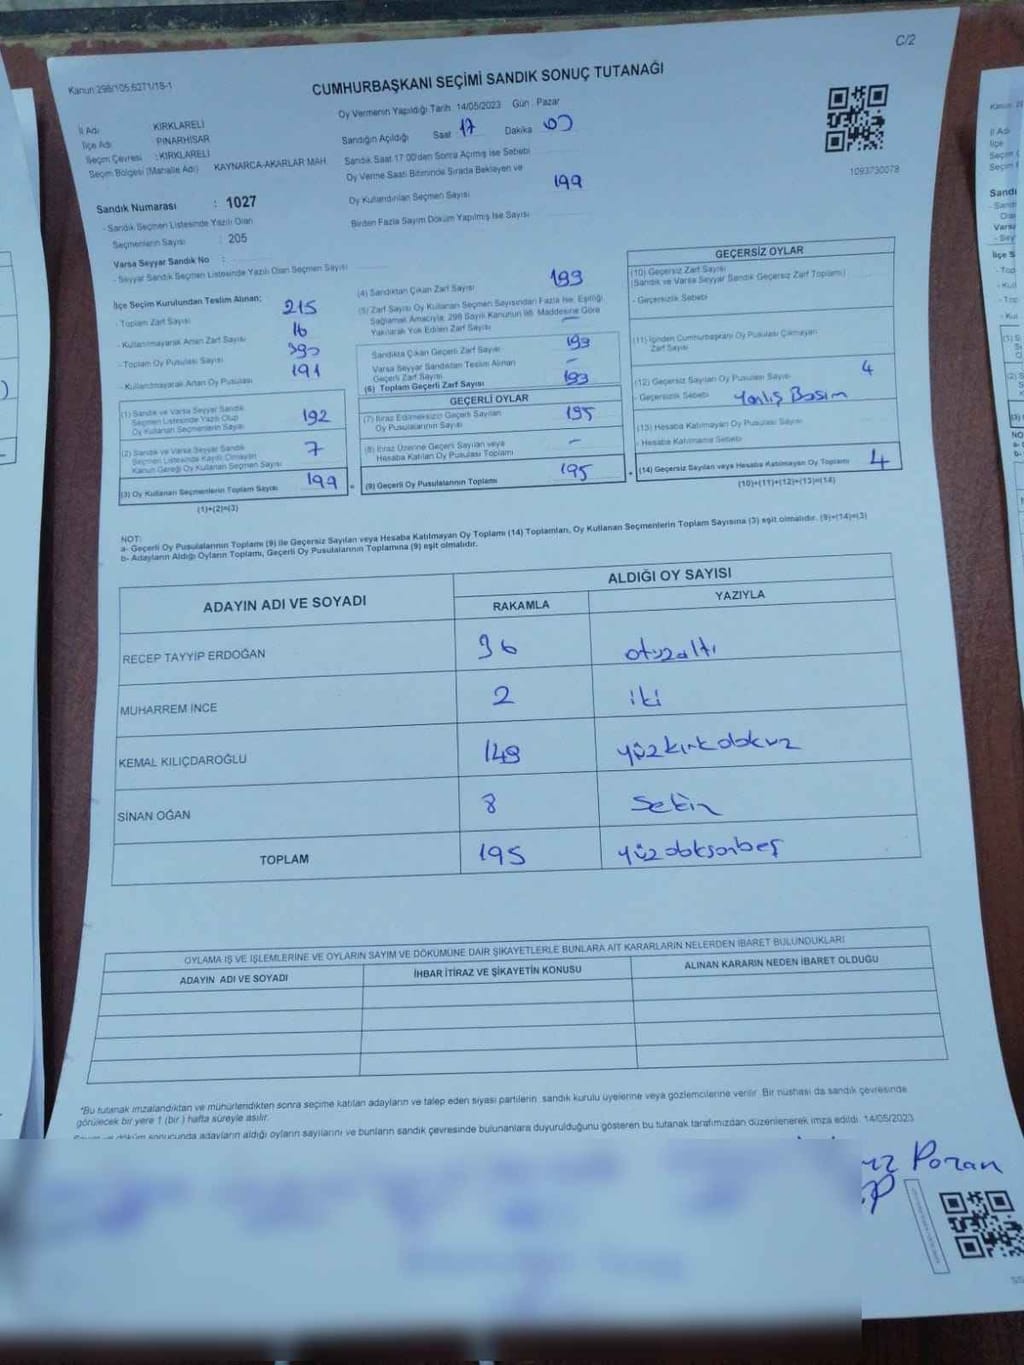 C/2
Kanun:298/105,6271/15-1
CUMHURBAŞKANI SEÇİMİ SANDIK SONUÇ TUTANAĞI
İl Adı KIRKLARELİ
İlçe Adı PINARHİSAR
Seçim Çevresi : KIRKLARELİ
Seçim Bölgesi (Mahalle Adı) KAYNARCA-AKARLAR MAH.
Oy Vermenin Yapıldığı Tarih 14/05/2023 Gün : Pazar
Sandığın Açıldığı Saat 17 Dakika 00
Sandık Saat 17:00'den Sonra Açmış İse Sebebi
Oy Verme Saati Bitiminde Sırada Bekleyen ve
Oy Kullandırılan Seçmen Sayısı 199
Birden Fazla Sayım Döküm Yapılmış İse Sayısı
1093730078
Sandık Numarası : 1027
- Sandık Seçmen Listesinde Yazılı Olan
Seçmenlerin Sayısı : 205
Varsa Seyyar Sandık No :
- Seyyar Sandık Seçmen Listesinde Yazılı Olan Seçmen Sayısı
İlçe Seçim Kurulundan Teslim Alınan;
- Toplam Zarf Sayısı 215
- Kullanılmayarak Artan Zarf Sayısı 16
- Toplam Oy Pusulası Sayısı 390
- Kullanılmayarak Artan Oy Pusulası 191
(1) Sandık ve Varsa Seyyar Sandık
Seçmen Listesinde Yazılı Olup
Oy Kullanan Seçmenlerin Sayısı 192
(2) Sandık ve Varsa Seyyar Sandık
Seçmen Listesinde Kayıtlı Olmayan
Kanun Gereği Oy Kullanan Seçmen Sayısı 7
(3) Oy Kullanan Seçmenlerin Toplam Sayısı 199
(1)+(2)=(3)
(4) Sandıktan Çıkan Zarf Sayısı 199
(5) Zarf Sayısı Oy Kullanan Seçmen Sayısından Fazla İse, Eşitliği
Sağlamak Amacıyla, 298 Sayılı Kanunun 98. Maddesine Göre
Yakılarak Yok Edilen Zarf Sayısı –
Sandıkta Çıkan Geçerli Zarf Sayısı 199
Varsa Seyyar Sandıktan Teslim Alınan
Geçerli Zarf Sayısı –
(6) Toplam Geçerli Zarf Sayısı 199
GEÇERLİ OYLAR
(7) İtiraz Edilmeksizin Geçerli Sayılan
Oy Pusulalarının Sayısı 195
(8) İtiraz Üzerine Geçerli Sayılan veya
Hesaba Katılan Oy Pusulası Toplamı –
(9) Geçerli Oy Pusulalarının Toplamı 195
GEÇERSİZ OYLAR
(10) Geçersiz Zarf Sayısı
(Sandık ve Varsa Seyyar Sandık Geçersiz Zarf Toplamı)
- Geçersizlik Sebebi
(11) İçinden Cumhurbaşkanı Oy Pusulası Çıkmayan
Zarf Sayısı
(12) Geçersiz Sayılan Oy Pusulası Sayısı 4
- Geçersizlik Sebebi Yanlış Basım
(13) Hesaba Katılmayan Oy Pusulası Sayısı
- Hesaba Katılmama Sebebi
(14) Geçersiz Sayılan veya Hesaba Katılmayan Oy Toplamı 4
(10)+(11)+(12)+(13)=(14)
NOT:
a- Geçerli Oy Pusulalarının Toplamı (9) ile Geçersiz Sayılan veya Hesaba Katılmayan Oy Toplamı (14) Toplamları, Oy Kullanan Seçmenlerin Toplam Sayısına (3) eşit olmalıdır. (9)+(14)=(3)
b- Adayların Aldığı Oyların Toplamı, Geçerli Oy Pusulalarının Toplamına (9) eşit olmalıdır.
ADAYIN ADI VE SOYADI ALDIĞI OY SAYISI
RAKAMLA YAZIYLA
RECEP TAYYİP ERDOĞAN 36 otuzaltı
MUHARREM İNCE 2 iki
KEMAL KILIÇDAROĞLU 149 yüzkırkdokuz
SİNAN OĞAN 8 Sekiz
TOPLAM 195 yüzdoksanbeş
OYLAMA İŞ VE İŞLEMLERİNE VE OYLARIN SAYIM VE DÖKÜMÜNE DAİR ŞİKAYETLERLE BUNLARA AİT KARARLARIN NELERDEN İBARET BULUNDUKLARI
ADAYIN ADI VE SOYADI İHBAR İTİRAZ VE ŞİKAYETİN KONUSU ALINAN KARARIN NEDEN İBARET OLDUĞU
*Bu tutanak imzalandıktan ve mühürlendikten sonra seçime katılan adayların ve talep eden siyasi partilerin, sandık kurulu üyelerine veya gözlemcilerine verilir. Bir nüshası da sandık çevresinde
görülecek bir yere 1 (bir) hafta süreyle asılır.
Sayım ve döküm sonucunda adayların aldığı oyların sayılarını ve bunların sandık çevresinde bulunanlara duyurulduğunu gösteren bu tutanak tarafımızdan düzenlenerek imza edildi. 14/05/2023
Pozan